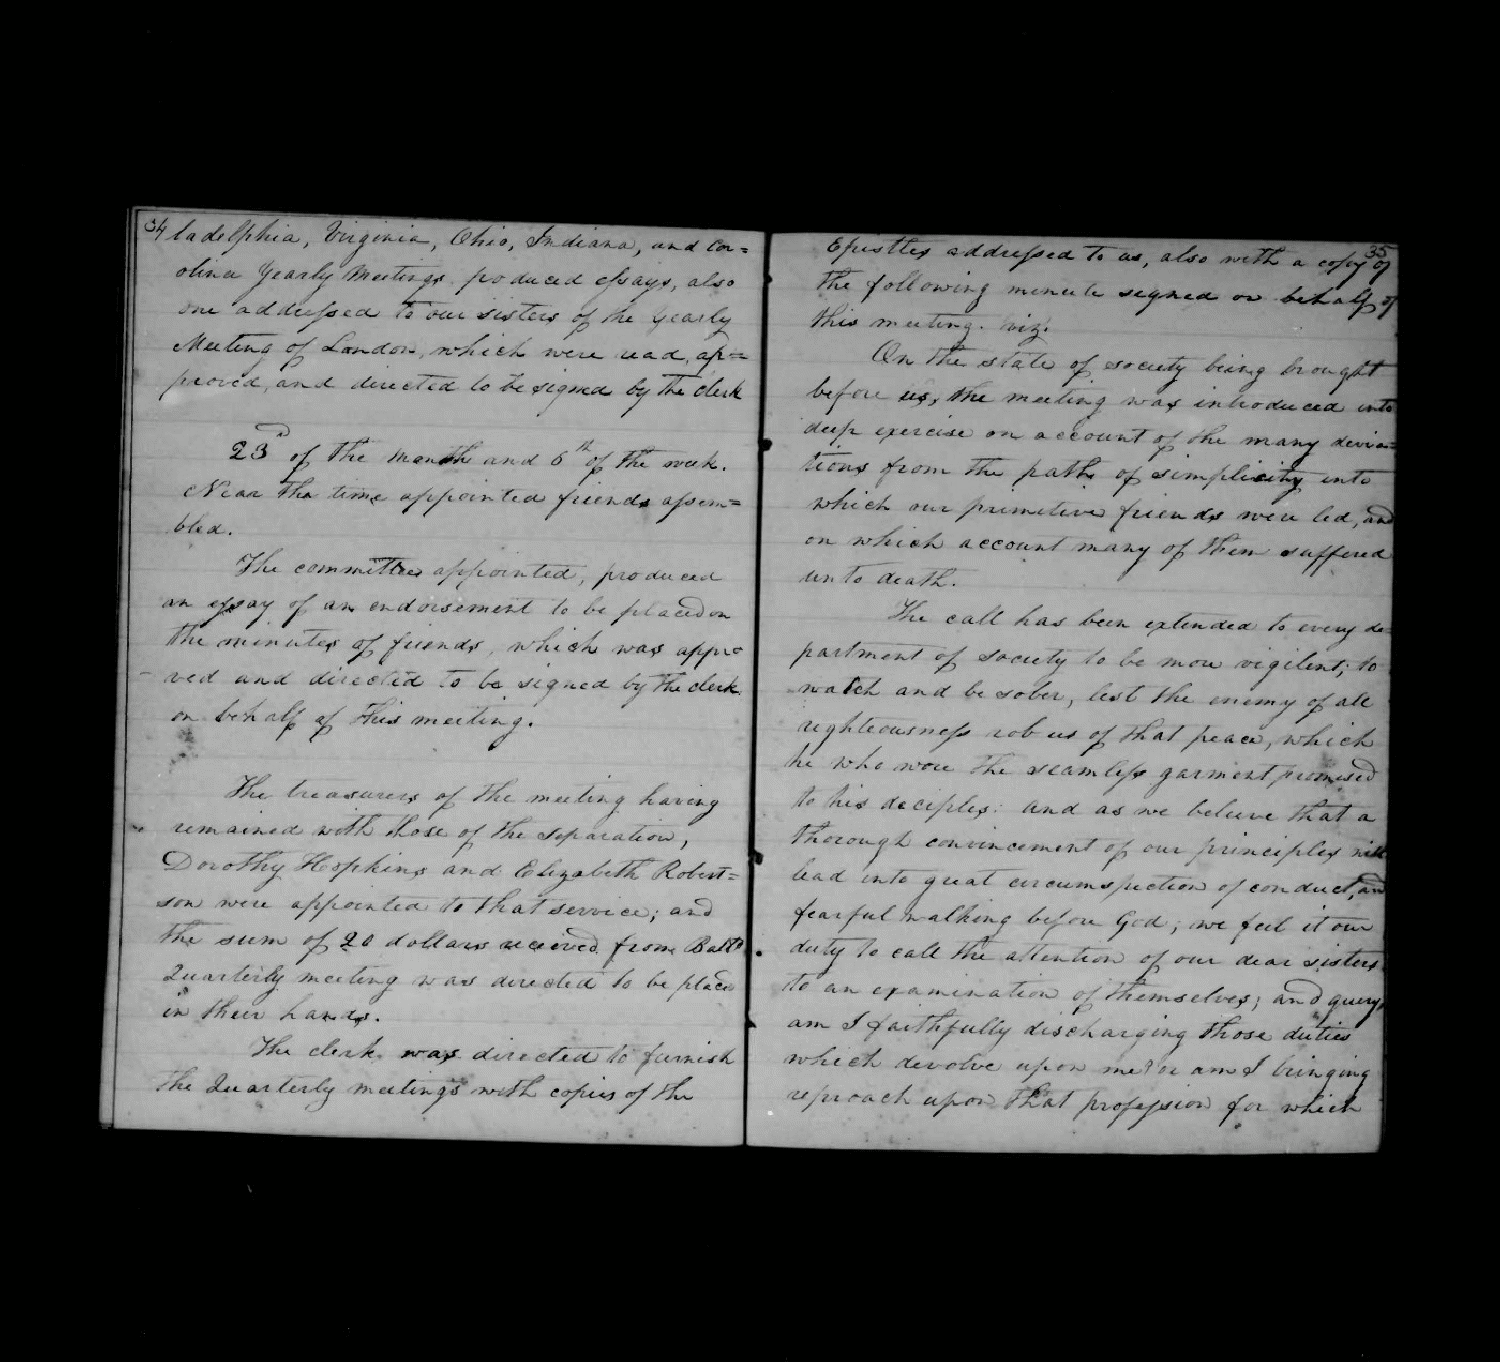 34
ladelphia, Virginia, Ohio, Indiana, and Car=
olina Yearly Meetings produced essays, also
one addressed to our sisters of the Yearly
Meeting of London, which were read, ap=
proved, and directed to be signed by the clerk
23d of the month and 6th of the week.
Near the time appointed friends assem=
bled.
The committee appointed, produced
an essay of an endorsement to be placed on
the minutes of friends, which was appro
ved and directed to be signed by the clerk
on behalf of this meeting.
The treasurers of the meeting having
remained with those of the separation,
Dorothy Hopkins and Elizabeth Robert=
son were appointed to that service; and
the sum of 20 dollars received from Balto
Quarterly meeting was directed to be placed
in their hands.
The clerk was directed to furnish
the Quarterly meetings with copies of the
35
Epistles addressed to us, also with a copy of
the following minute signed on behalf of
this meeting. viz.
On the state of society being brought
before us, the meeting was introduced into
deep exercise on account of the many devia=
tions from the path of simplicity into
which our primitive friends were led, and
on which account many of them suffered
unto death.
The call has been extended to every de
partment of society to be more vigilent; to
watch and be sober, lest the enemy of all
righteousness rob us of that peace, which
he who wore the seamless garment promised
to his deciples: and as we believe that a
thorough convincement of our principles will
lead into great circumspection of conduct, and
fearful walking before God; we feel it our
duty to call the attention of our dear sisters
to an examination of themselves; and query
am I faithfully discharging those duties
which devolve upon me? or am I bringing
reproach upon that profession for which